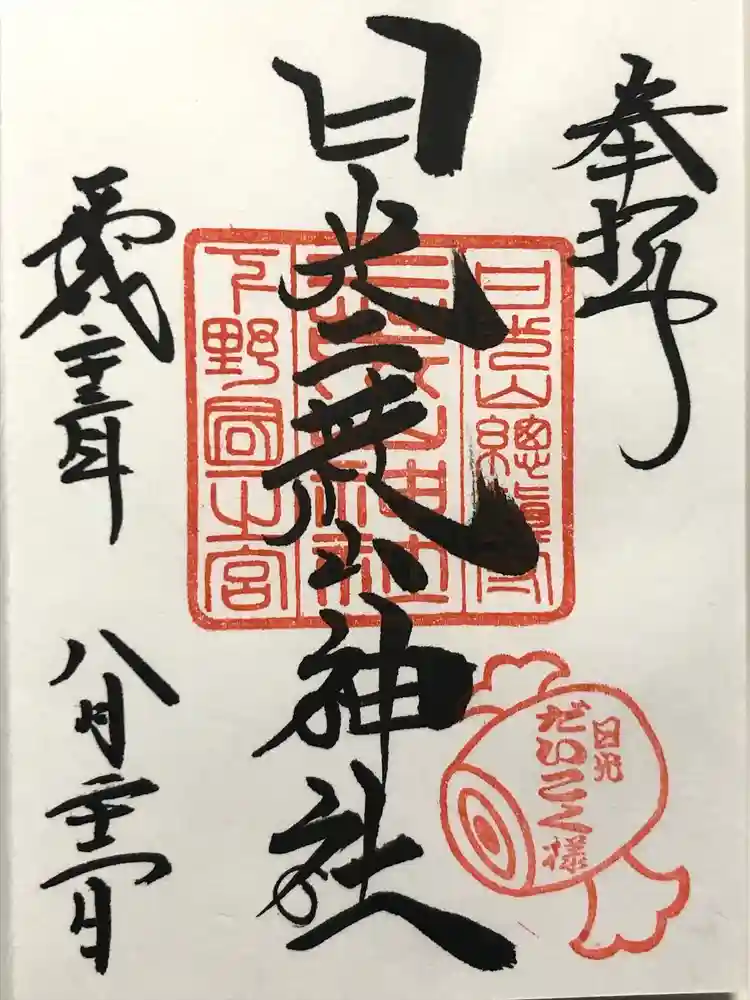 奉拝
日光二荒山神社
平成二十三年
八月
日光山總鎮守
二荒山神社
下野國一之宮
日光
だいこく様